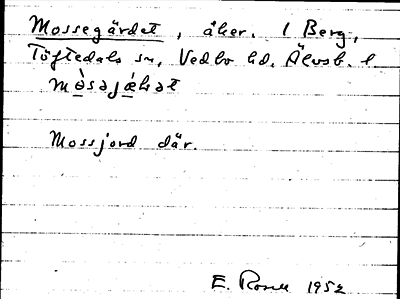 Mossegärdet, åker. 1 Berg,
Töftedals sn, Vedbo hd, Älvsb. l.
Mossjord där.
E. Rosell 1952